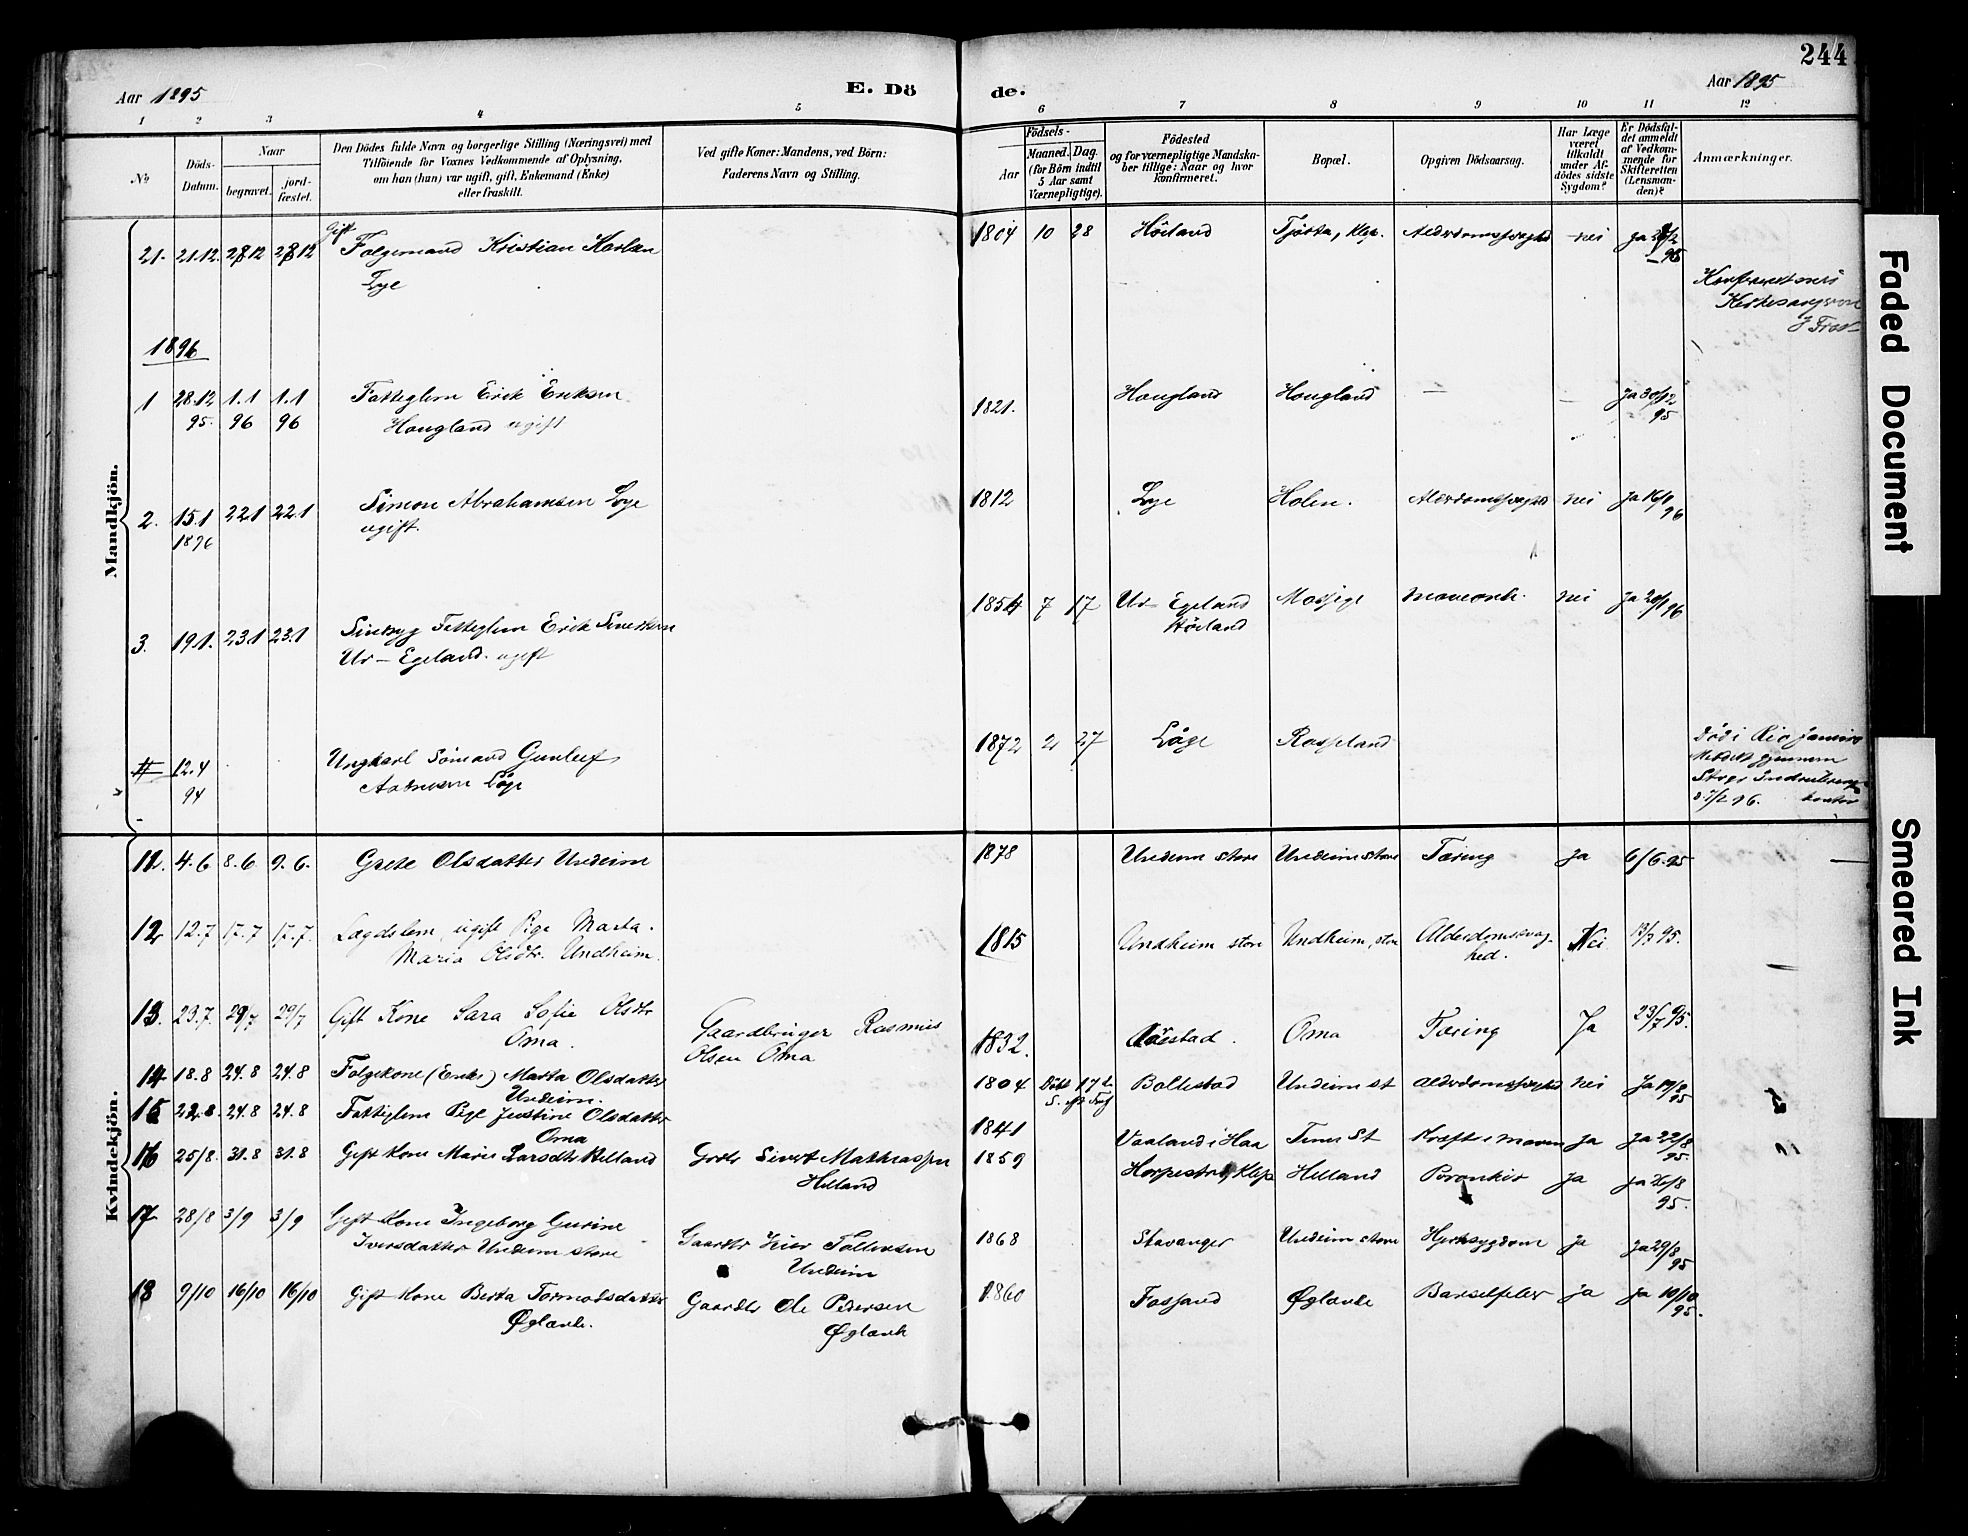 244
Aar 1895
E. Döde.
Aar 1895
1 2 3 4 5 6 7 8 9 10 11 12
No
Döds-Datum.
Naar
begravet.
jord-fæstet.
Den Dödes fulde Navn og borgerlige Stilling (Næringsvei) med
Tilföiende for Voxnes Vedkommende af Oplysning,
om han (hun) var ugift, gift, Enkemand (Enke)
eller fraskilt.
Ved gifte Koner: Mandens, ved Börn:
Faderens Navn og Stilling.
Födsels-
Aar
Maaned. Dag.
(for Börn indtil
5 Aar samt
Værnepligtige).
Födested
og for værnepligtige Mandska-
ber tillige: Naar og hvor
konfirmeret.
Bopæl.
Opgiven Dödsaarsag.
Har Læge
været
tilkaldt
under Af-
dödes sidste
Sygdom?
Er Dödsfal-
det anmeldt
af Vedkom-
mende for
Skifteretten
(Lensman-
den)?
Anmærkninger.
Mandkjön.
21. 21.12. 28 12 28 12 Gift Folgemand Kristian Karlsen 1804 10 28 Höiland Tjötta, Klep. Alderdomssvaghed nei ja
Lye
1896
1 28.12 1.1 1.1 Fattiglem Erik Eriksen 1821. Hougland Hougland — — Ja 30/12
95. 96 96 Hougland ugift 95
2. 15.1 22.1 22.1 Simon Abrahamsen Lye 1812 Lye Holen. Alderdomssvaghed nei ja 16/1
1896 ugift. 96
3. 19.1. 23.1 23.1 Sindssyg Fattiglem Erik 1854 7 17 Ur-Egeland nei ja 20/1 96
Ur-Egeland. ugift Höiland
12.4 Ungkarl Sömand Gunleif 1872 2 27 Löge Rosseland Död i Rio Janeiro
94 Löge Meddelt gjennem
Kvindekjön.
11. 4.6 8.6 9.6. Grete Olsdatter Undeim 1878 Undeim store Undeim store Tæring ja 6/6.95
12 12.7 17.7 17.7. Lægdslem, ugift Pige Marta 1815 Undheim store Undheim, store Alderdomssvag- Nei 13/7 95.
Maria Olsdtr. Undheim. hed.
13. 23.7. 29/7 29/7 Gift Kone Sara Sofie Olsdtr Gaardbruger Rasmus 1832. Oma Tæring Ja 23/7 95.
Oma. Olsen Oma
14 18.8 24.8 24.8 Folgekone (Enke) Marta Olsdatter 1804 Bollestad Undeim st Alderdomssvaghed nei Ja 19/8
Undeim. 95
15 22.8. 24.8 24.8 Fattiglem Pige Justine Olsdatter 1841 Vaaland i Haa Time St Kræft i maven ja ja 22/8
Oma 95.
16 25/8. 31.8 31.8 Gift Kone Marie Larsdtr Helland Grdbr Sivert Mathiassen 1859 Horpestad, Klep Helland ja ja 26/8
Helland 95.
17 28/8 3/9 3/9 Gift Kone Ingeborg Gurine 1868 Stavanger Undeim store Hjertesygdom ja ja 29/8
Iversdatter Undeim store Gaardbr 95
Undeim
18 9/10 16/10 16/10 Gift Kone Berta Tormodsdatter Gaardbr Ole Pedersen 1860 Fosseland Øglænd Barselfeber ja ja 10/10
Øglænd. Øglænd 95.
Faded Document
Smeared Ink